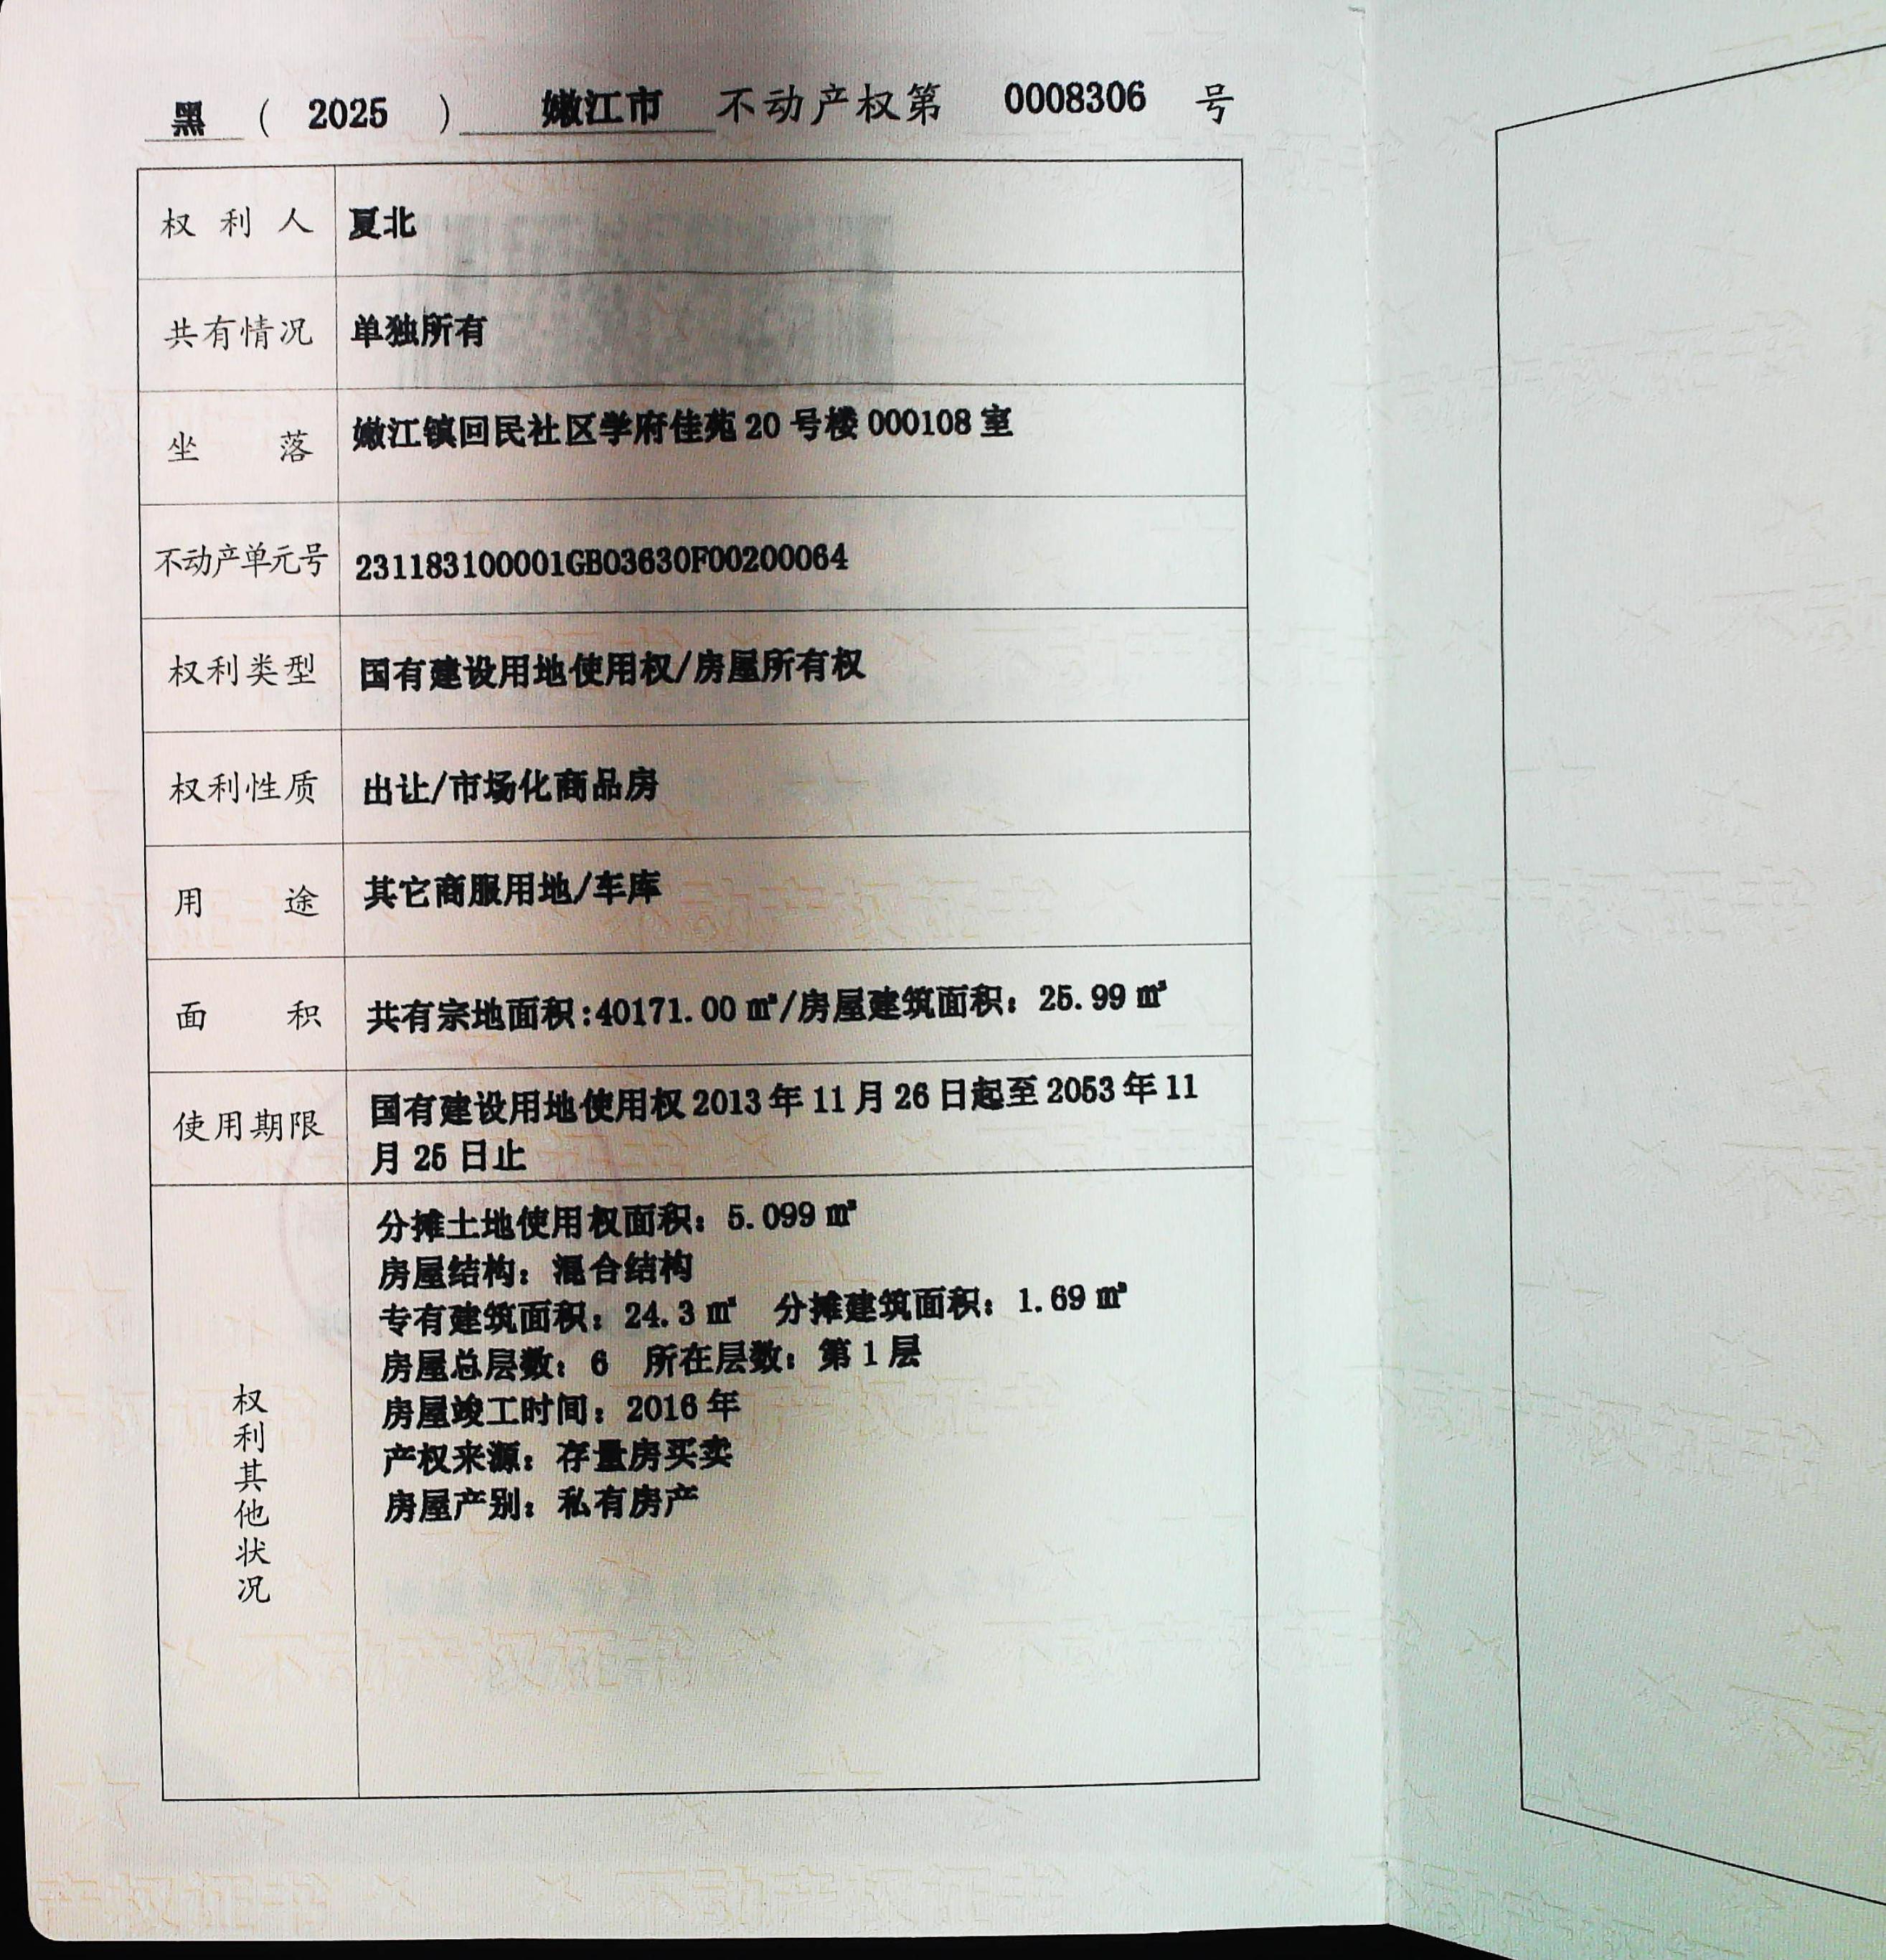 黑 ( 2025 ) 嫩江市 不动产权第 0008306 号
权利人 夏北
共有情况 单独所有
坐落 嫩江镇回民社区学府佳苑 20 号楼 000108 室
不动产单元号 231183100001GB03630F00200064
权利类型 国有建设用地使用权/房屋所有权
权利性质 出让/市场化商品房
用途 其它商服用地/车库
面积 共有宗地面积:40171.00 ㎡/房屋建筑面积：25.99 ㎡
使用期限 国有建设用地使用权 2013 年 11 月 26 日起至 2053 年 11
月 25 日止
权利其他状况
分摊土地使用权面积：5.099 ㎡
房屋结构：混合结构
专有建筑面积：24.3 ㎡ 分摊建筑面积：1.69 ㎡
房屋总层数：6 所在层数：第 1 层
房屋竣工时间：2016 年
产权来源：存量房买卖
房屋产别：私有房产